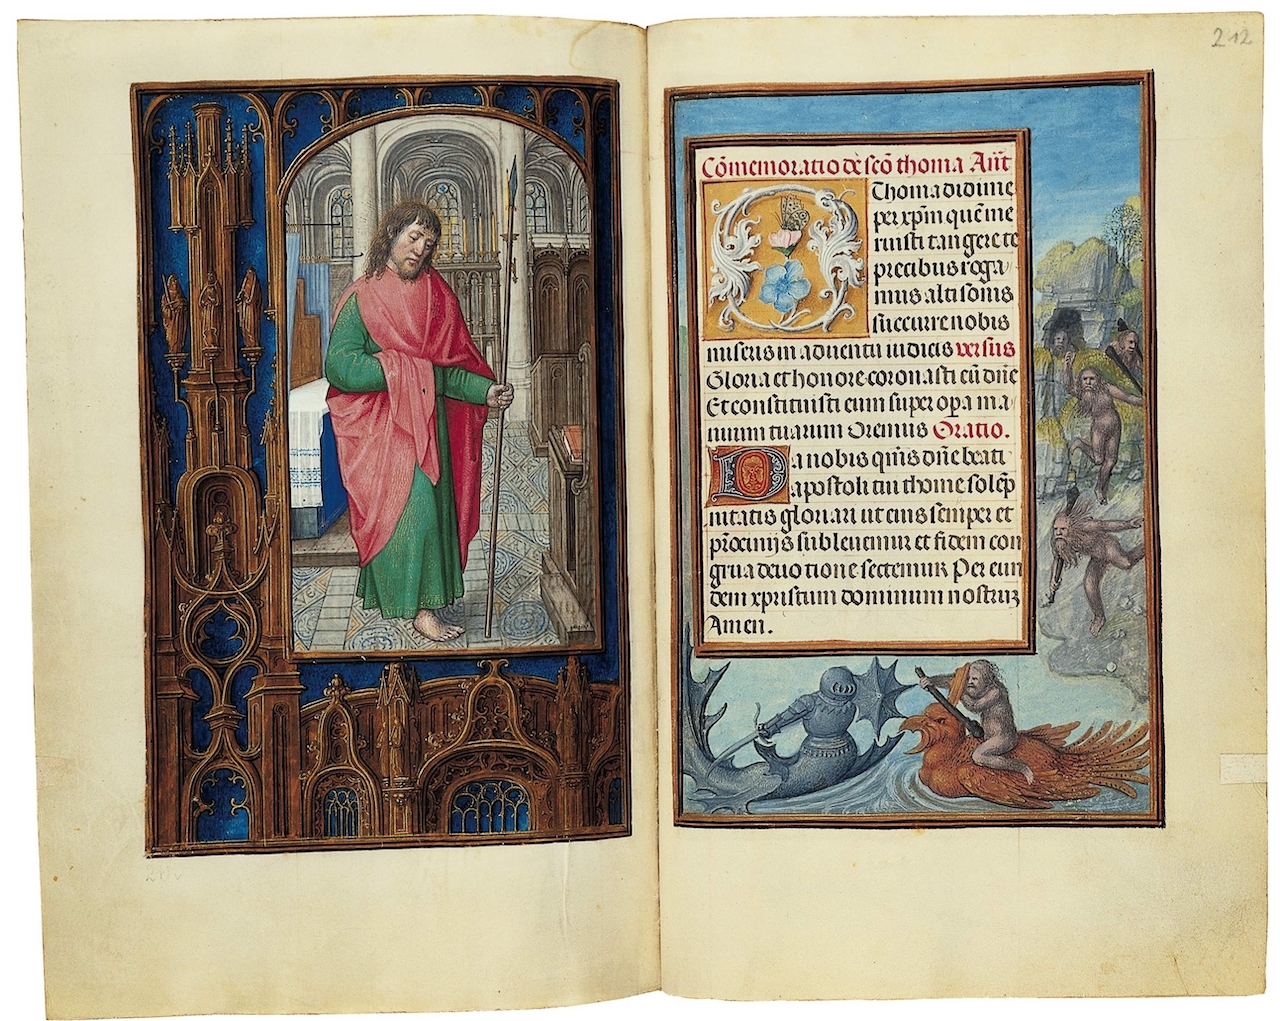 212
Cōmemoratio de scō thoma Añt
Thoma didime
per xp̄m quē me
ruisti tangere te
precibus roga
mus altisonis
succurre nobis
miseris in aduentu iudicis versus
Gloria et honore coronasti eū dñe
Et constituisti eum super opera ma
nuum tuarum Oremus Oratio.
Da nobis qūs dñe beati
apostoli tui thome solēp
nitatis gloriari ut eius semper et
prōcinijs subleuemur et fidem con
grua deuotione sectemur Per eun
dem xpristum dominum nostrum
Amen.